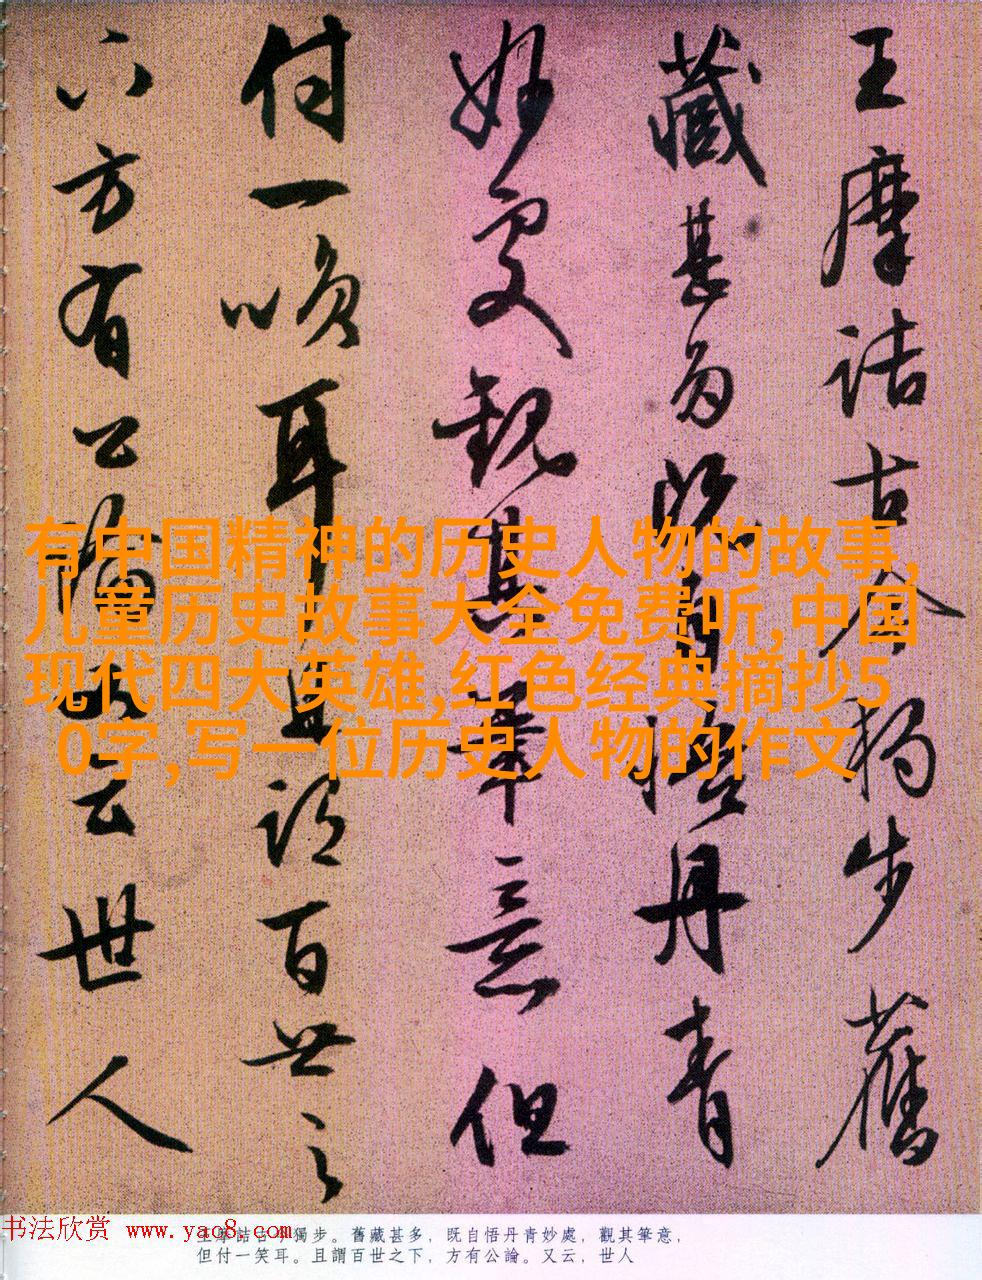 王摩詰古今獨步舊
藏甚多既自悟丹青
妙處觀其筆意但
付一咲耳且謂百世之
下方有公論又云世人
有中国精神的历史人物的故事,
儿童历史故事大全免费听,中国
现代四大英雄,红色经典摘抄5
0字,写一位历史人物的作文
书法欣赏 www.yac8.com
王摩詰古今獨步。舊藏甚多，既自悟丹青妙處，觀其筆意，
但付一笑耳。且謂百世之下，方有公論。又云，世人